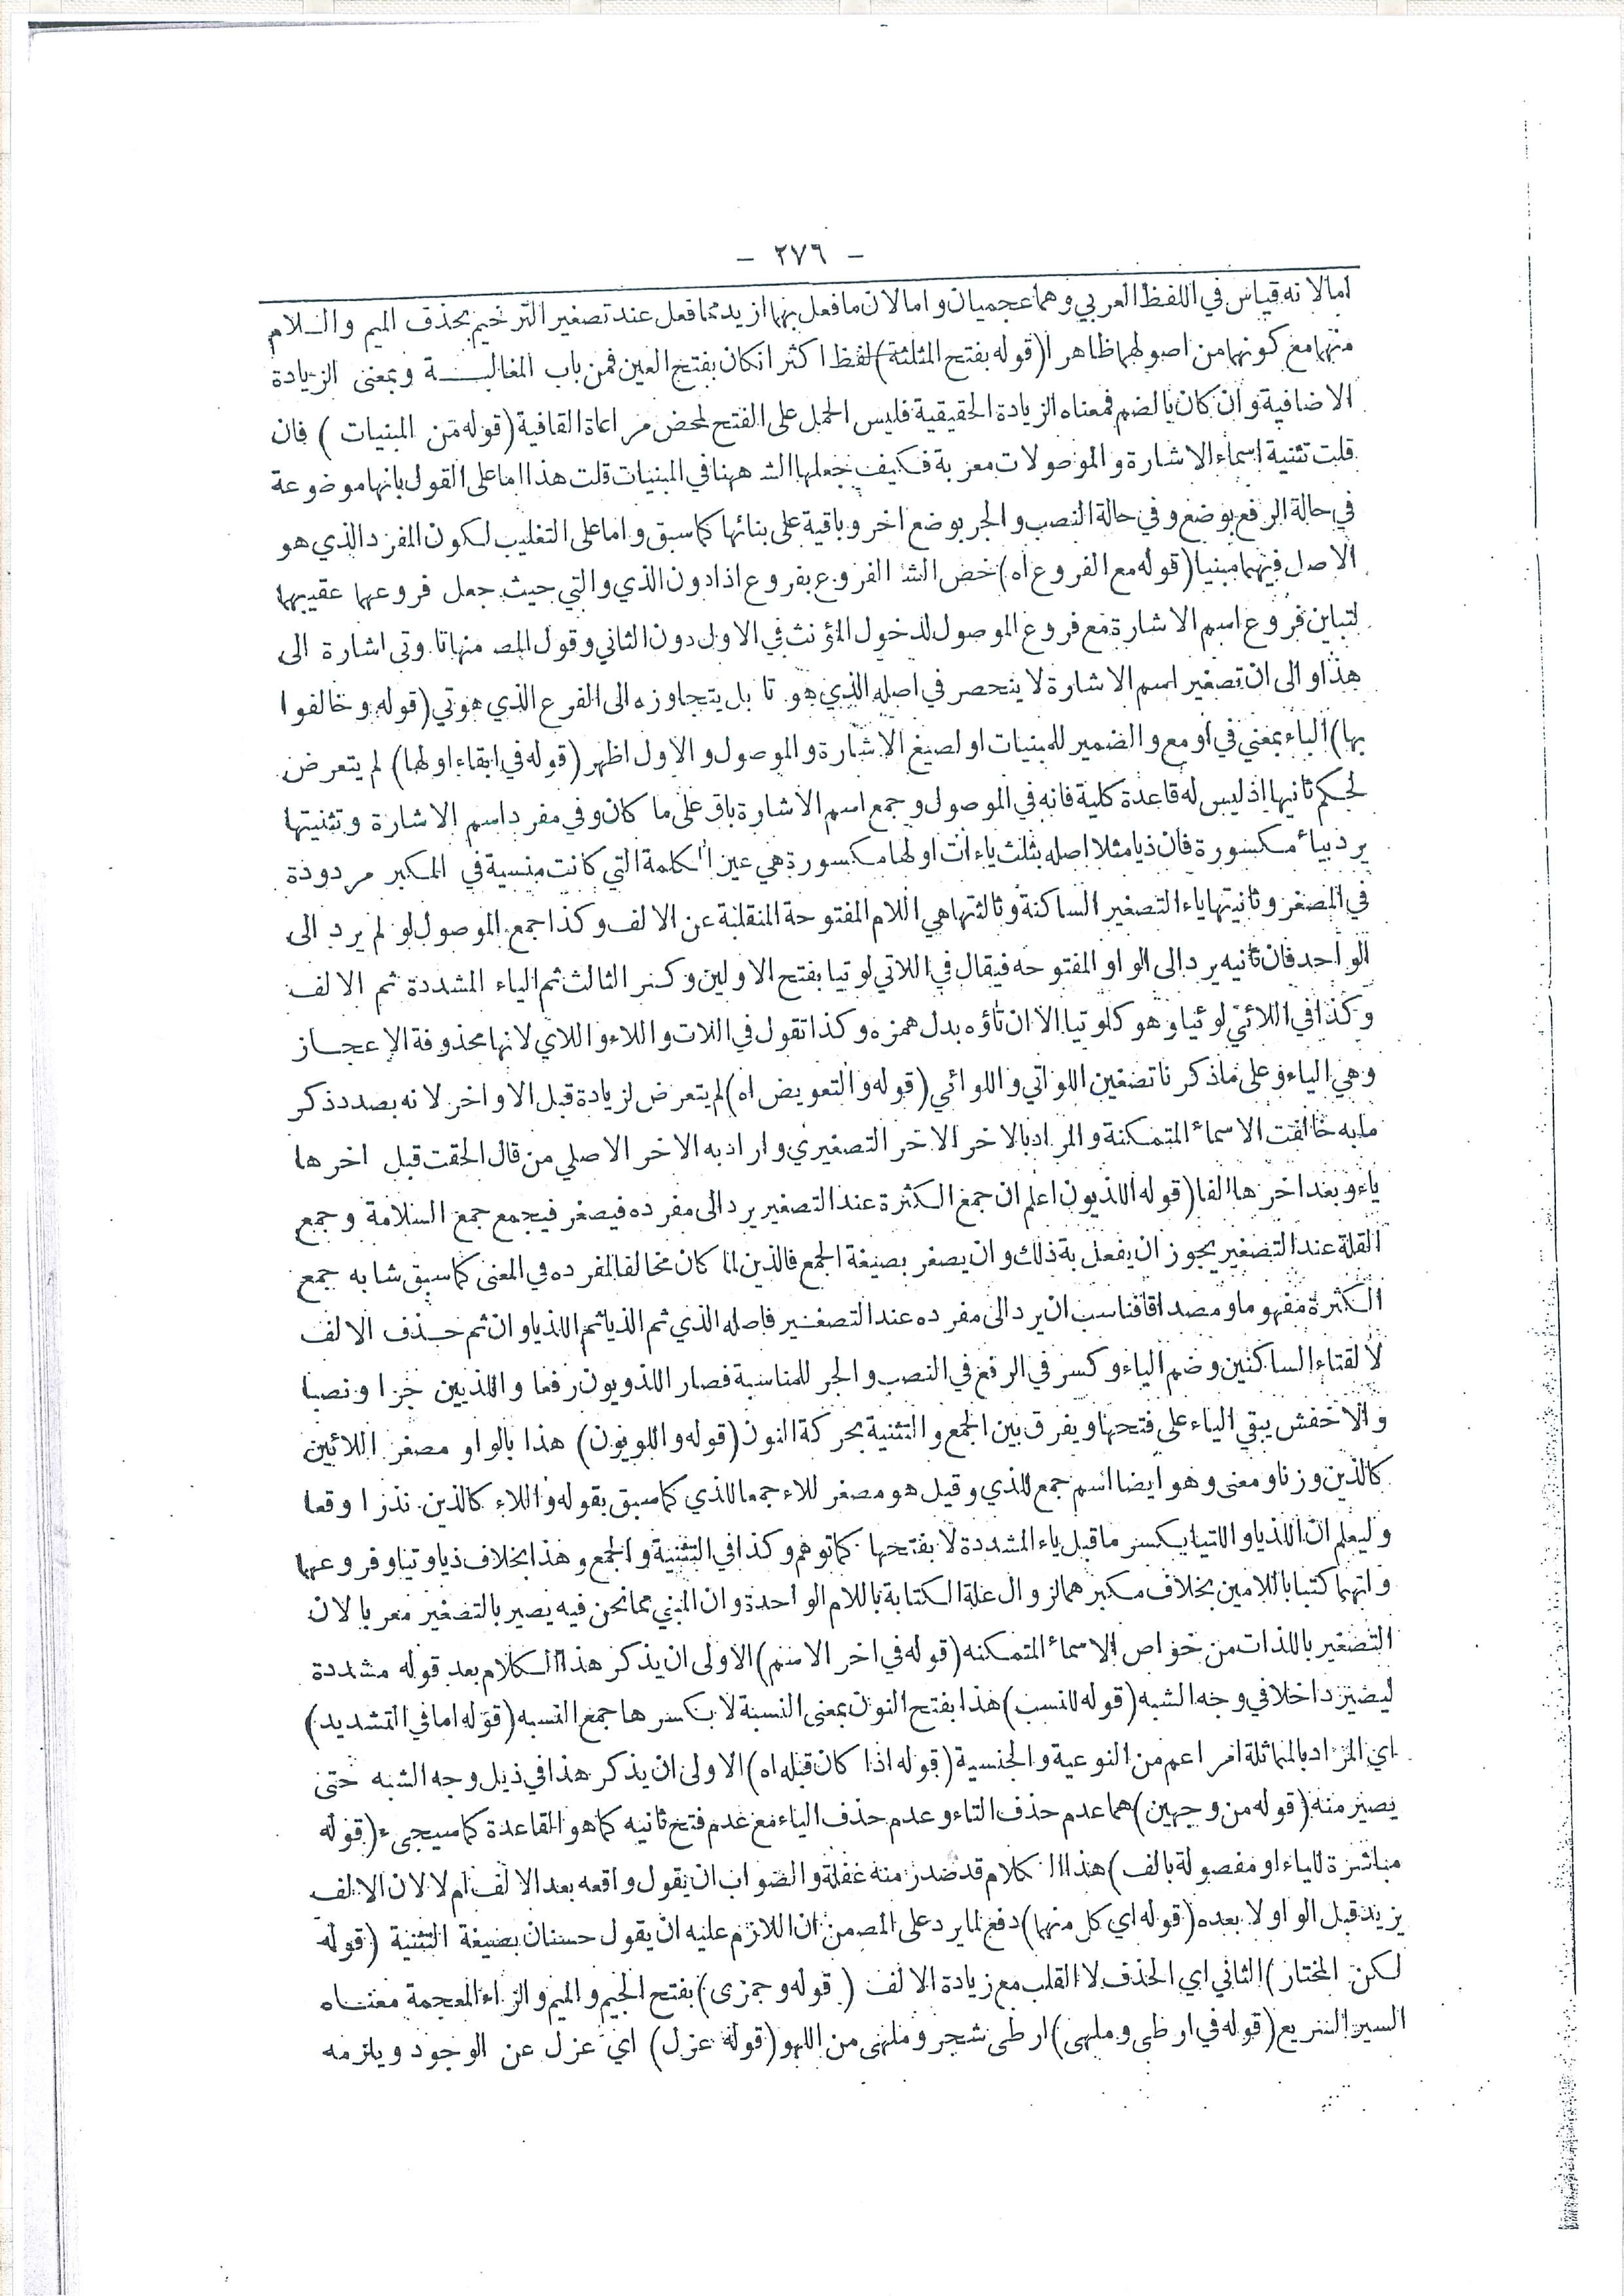 - ٢٧٦ -
امالانه قياس في اللفظ العربي وهما عجميان وامالان مافعل بهما ازيد مما فعل عند تصغير الترخيم بحذف الميم والـلام
منهما مع كونهما من اصولهما ظاهرا (قوله بفتح المثلثة) لفظ اكثر انكان بفتح العين فمن باب المغالبـــة وبمعنى الزيادة
الاضافية وان كان بالضم فمعناه الزيادة الحقيقية فليس الحمل على الفتح لمحض مراعاة القافية (قوله من المبنيات ) فان
قلت تثنية اسماء الاشارة والموصولات معربة فكيف جعلها الشـ ههنا في المبنيات قلت هذا اما على القول بانها موضوعة
في حالة الرفع بوضع وفي حالة النصب والجر بوضع اخر وباقية على بنائها كما سبق واما على التغليب لكون المفرد الذي هو
الاصل فيهما مبنيا (قوله مع الفروع اه) خص الشـ الفروع بفروع اذا دون الذي والتي حيث جعل فروعهما عقيبهما
لتباين فروع اسم الاشارة مع فروع الموصول لدخول المؤنث في الاول دون الثاني وقول المصـ منها تا وتى اشارة الى
هذا والى ان تصغير اسم الاشارة لا ينحصر في اصله الذي هو تا بل يتجاوزه الى الفرع الذي هو تي (قوله وخالفوا
بها) الباء بمعني في او مع والضمير للمبنيات او لصيغ الاشارة والموصول والاول اظهر (قوله في ابقاء اولها) لم يتعرض
لحكم ثانيها اذ ليس له قاعدة كلية فانه في الموصول وجمع اسم الاشارة باق على ما كان وفي مفرد اسم الاشارة وتثنيتها
يرد بياء مكسورة فان ذيا مثلا اصله بثلث ياءات اولها مكسورة هي عين الكلمة التي كانت منسية في المكبر مردودة
في المصغر وثانيتها ياء التصغير الساكنة وثالثتها هي اللام المفتوحة المنقلبة عن الالف وكذا جمع الموصول لو لم يرد الى
الواحد فان ثانيه يرد الى الواو المفتوحه فيقال في اللاتي لوتيا بفتح الاولين وكسر الثالث ثم الياء المشددة ثم الالف
وكذا في اللائي لوئيا وهو كلوتيا الا ان تاؤه بدل همزه وكذا تقول في اللات واللاء واللاي لانها محذوفة الاعجـاز
وهي الياء وعلى ماذكرنا تصغير اللواتي واللوائي (قوله والتعويض اه) لم يتعرض لزيادة قبل الاواخر لانه بصدد ذكر
مابه خالفت الاسماء المتمكنة والمراد بالاخر الاخر التصغيري واراد به الاخر الاصلي من قال الحقت قبل اخرها
ياء وبعد اخرها الفا (قوله اللذيون اعلم ان جمع الكثرة عند التصغير يرد الى مفرده فيصغر فيجمع جمع السلامة وجمع
القلة عند التصغير يجوز ان يفعل به ذلك وان يصغر بصيغة الجمع فالذين لما كان مخالفا لمفرده في المعنى كما سبق شابه جمع
الكثرة مفهوما ومصداقا فناسب ان يرد الى مفرده عند التصغـير فاصله الذي ثم الذيا ثم اللذياوان ثم حـذف الالف
لالتقاء الساكنين وضم الياء وكسر في الرفع في النصب والجر للمناسبة فصار اللذويون رفعا واللذيين جرا ونصبا
والاخفش يبقي الياء على فتحها ويفرق بين الجمع والتثنية بحركة النون (قوله واللويون) هذا بالواو مصغر اللائين
كالذين وزنا ومعنى وهو ايضا اسم جمع للذي وقيل هو مصغر للاء جمعا للذي كما سبق بقوله واللاء كالذين نذرا وقعا
وليعلم ان اللذيا واللتيا يكسر ماقبل ياء المشددة لا بفتحها كما توهم وكذا في التثنية والجمع وهذا بخلاف ذيا وتيا وفروعهما
وانهما كتبا باللامين بخلاف مكبرهما لزوال علة الكتابة باللام الواحدة وان المبني مما نحن فيه يصير بالتصغير معربا لان
التصغير باللذات من خواص الاسماء المتمكنه (قوله في اخر الاسم) الاولى ان يذكر هذا الكلام بعد قوله مشددة
ليصير داخلا في وجه الشبه (قوله للنسب) هذا بفتح النون بمعنى النسبة لا بكسرها جمع النسبه (قوله اما في التشديد)
اي المراد بالمماثلة امر اعم من النوعية والجنسية (قوله اذا كان قبله اه) الاولى ان يذكر هذا في ذيل وجه الشبه حتى
يصير منه (قوله من وجهين) هما عدم حذف التاء وعدم حذف الياء مع عدم فتح ثانيه كما هو القاعدة كما سيجىء (قوله
مباشرة للياء او مفصولة بالف) هذا الكلام قد صدر منه غفلة والصواب ان يقول واقعه بعد الالف ام لا لان الالف
يزيد قبل الواو لا بعده (قوله اي كل منها) دفع لما يرد على المصـ من ان اللازم عليه ان يقول حسنان بصيغة التثنية (قوله
لكن المختار) الثاني اي الحذف لا القلب مع زيادة الالف ( قوله وجمزى) بفتح الجيم والميم والزاء المعجمة معنـاه
السير السريع (قوله في ارطى وملهى) ارطى شجر وملهى من اللهو (قوله عزل) اي عزل عن الوجود ويلزمه